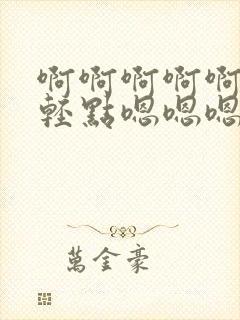 啊啊啊啊啊
轻點嗯嗯嗯
萬金豪